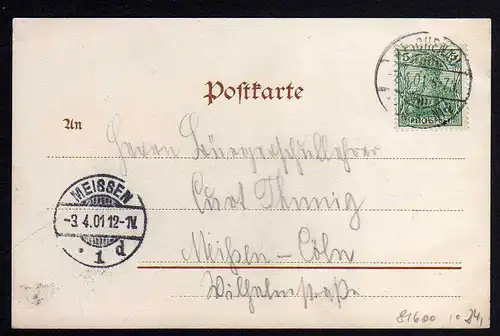 Postkarte
An
Herrn Bürgerschullehrer
Curt
Meißen-Cöln
Wilhelmstraße
MEISSEN
-3.4.01 12-1V.
1 d
5
81600
24,-